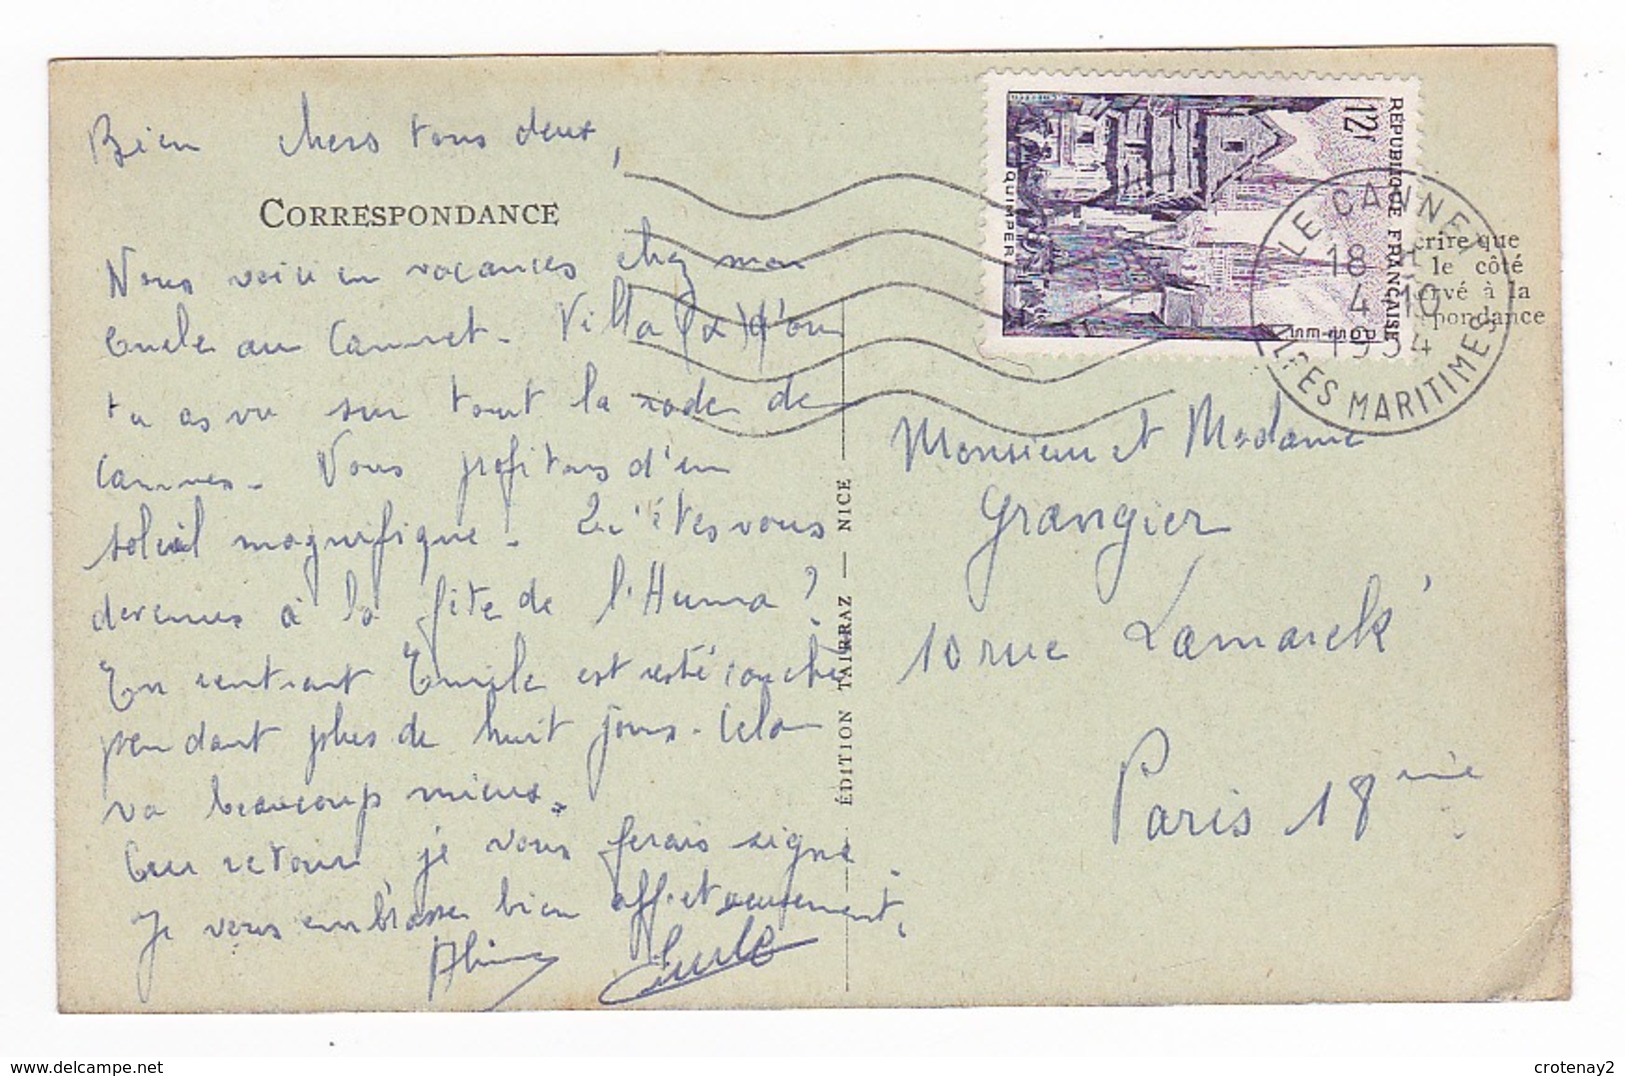 Bien chers tous deux,
CORRESPONDANCE
Nous voici en vacances chez mon
oncle au Cannet. Villa (x) d'où
tu as vu sur tout la rade de
Cannes. Nous profitons d'un
soleil magnifique. Qu'êtes vous
devenus à la fête de l'Huma ?
En rentrant Emile est resté couché
pendant plus de huit jours. Cela
va beaucoup mieux.
Au retour je vous ferais signe
Je vous embrasse bien affectueusement.
Emile
ÉDITION TAIRRAZ — NICE
RÉPUBLIQUE FRANÇAISE
12f
QUIMPER
LE CANNET
18 H
4-10
1954
ALPES MARITIMES
crire que
le côté
ervé à la
pondance
Monsieur et Madame
Grangier
10 rue Lamarck
Paris 18ème
crotenay2